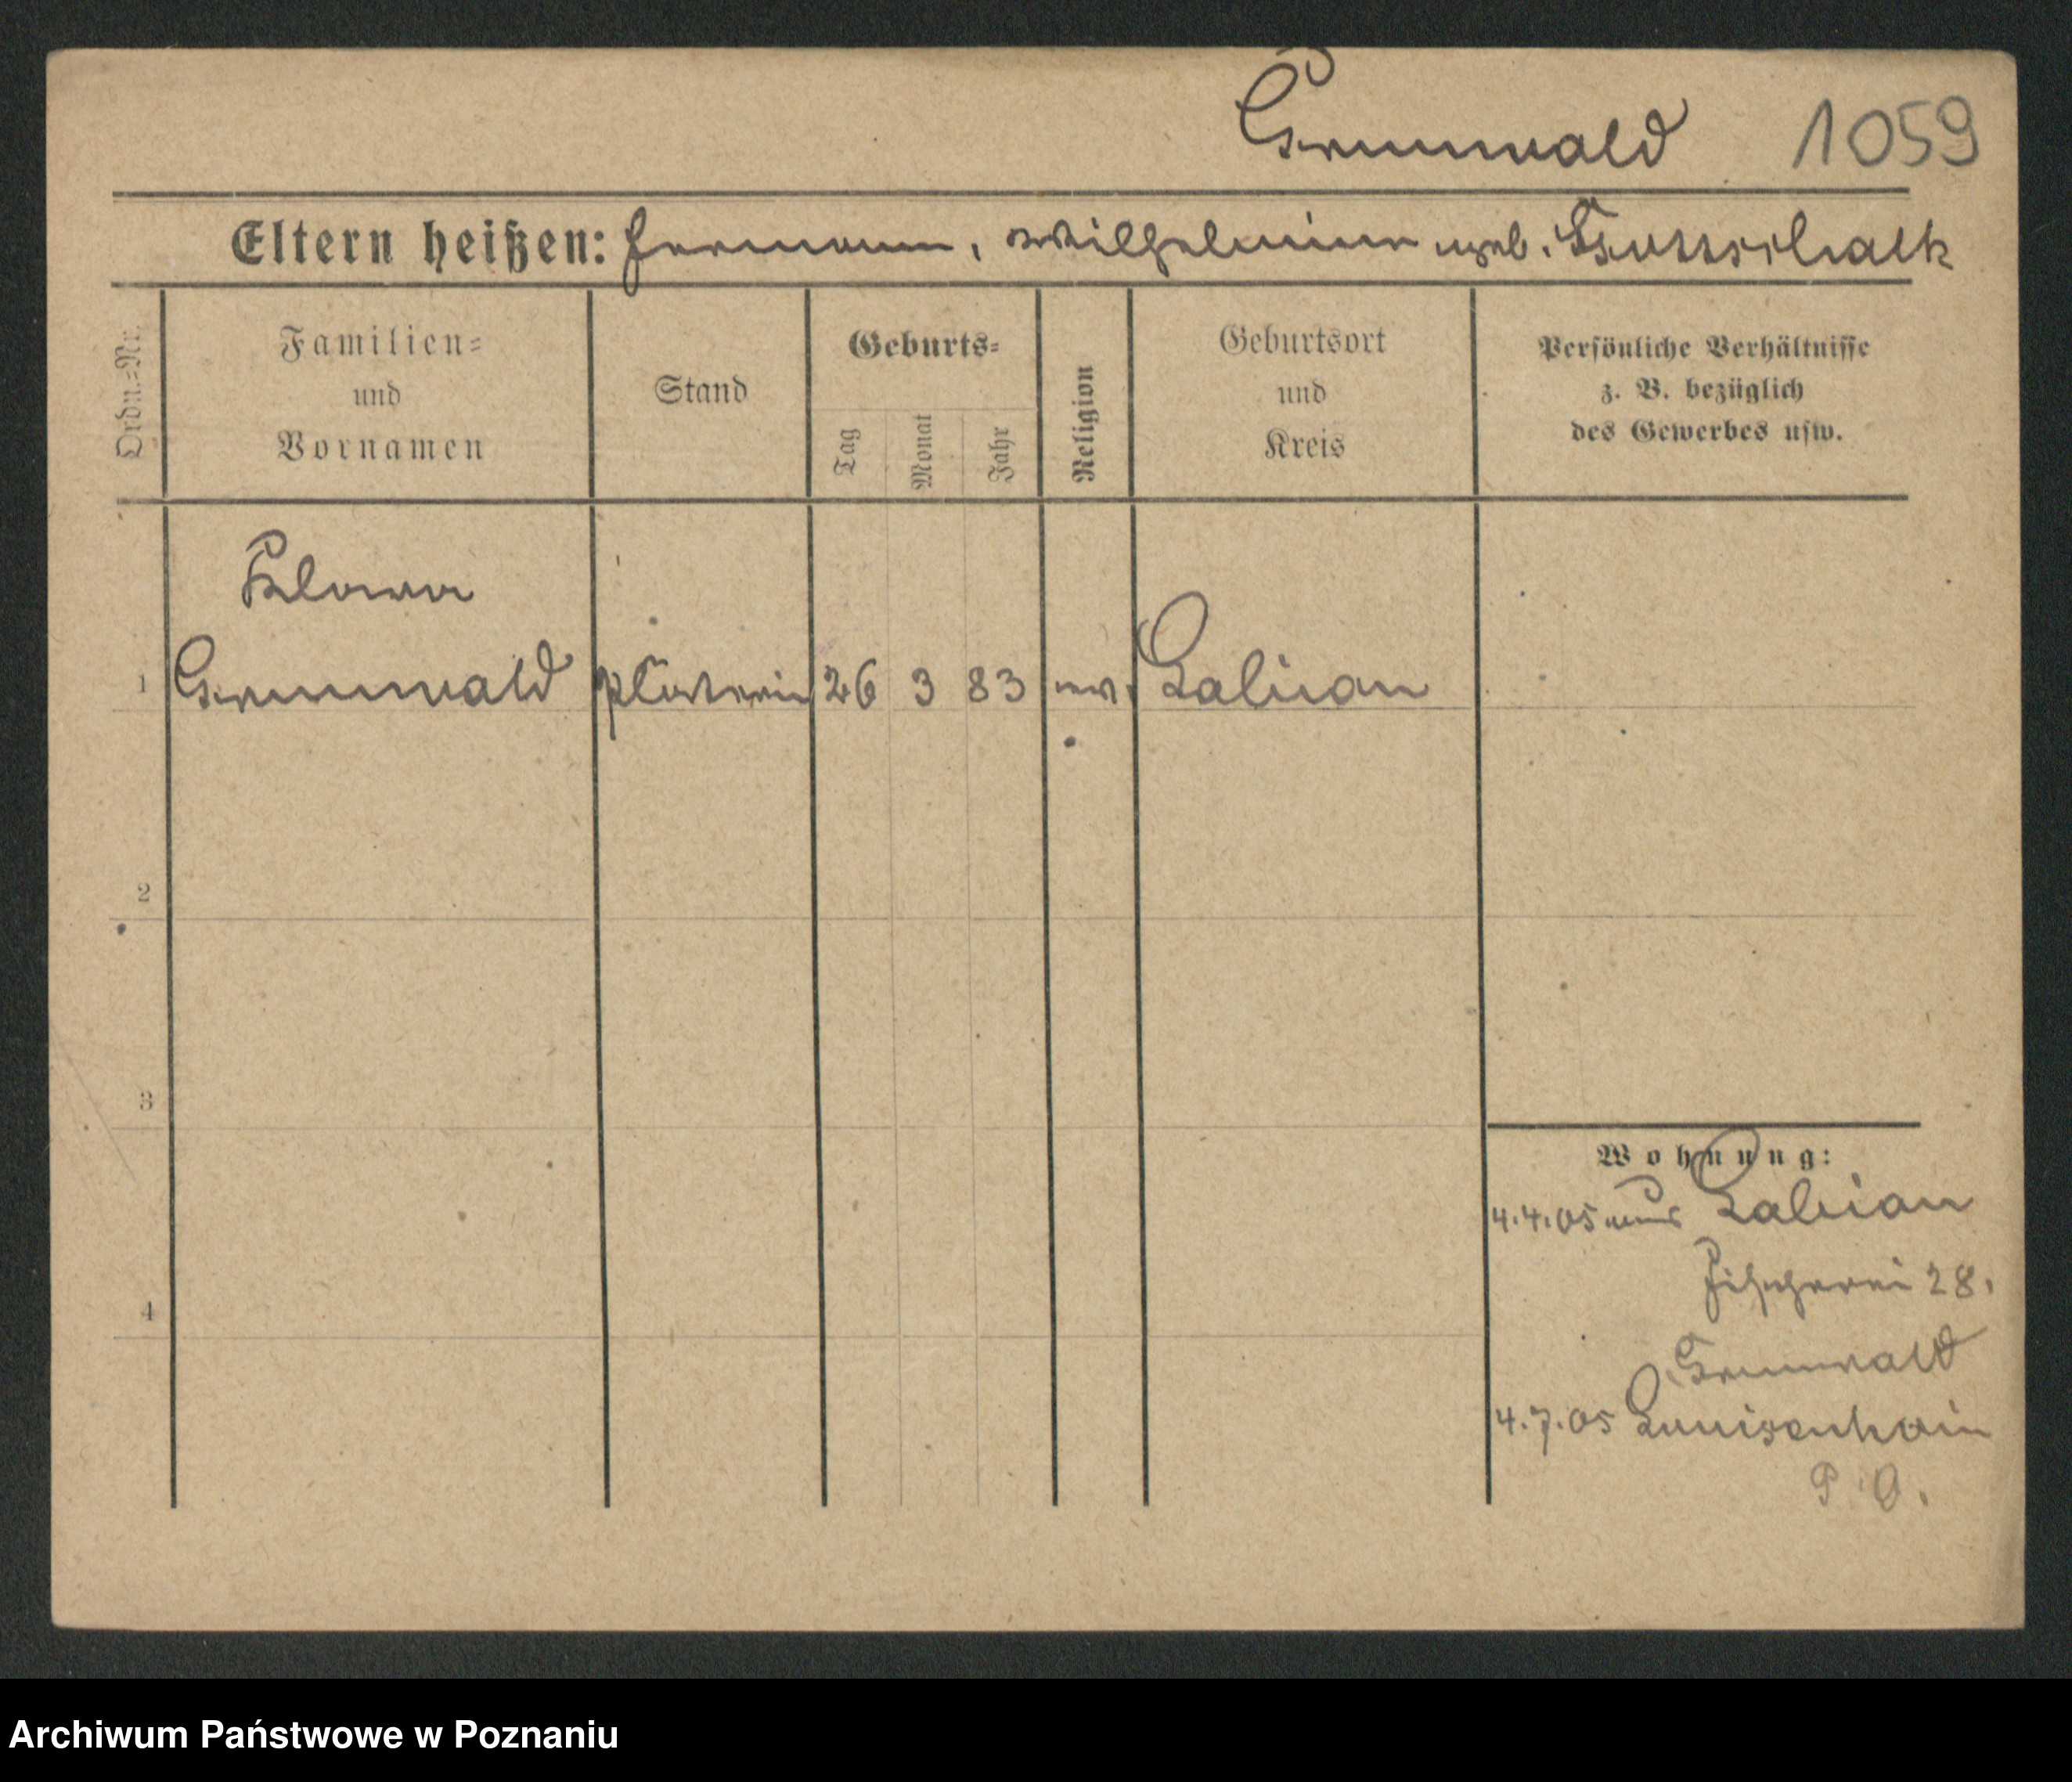 Grunwald 1059
Eltern heißen: Hermann, Wilhelmine geb.
Ordn.=Nr.
Familien=
und
Vornamen
Stand
Geburts=
Tag
Monat
Jahr
Religion
Geburtsort
und
Kreis
Persönliche Verhältnisse
z. B. bezüglich
des Gewerbes usw.
Klara
1 Grunwald Plätterin 26 3 83 ev. Labiau
2
3
4
Wohnung:
4.4.05 aus Labiau
Fischerei 28.
Grunwald
4.7.05 Luisenhain
P. O.
Archiwum Państwowe w Poznaniu